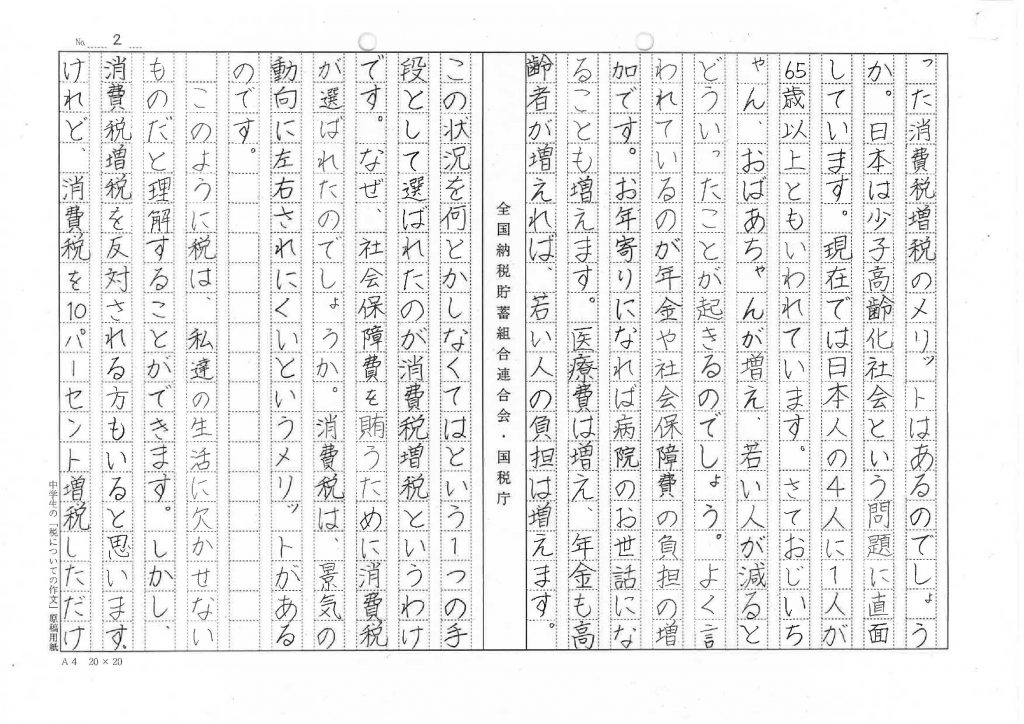 No. 2
った消費税増税のメリットはあるのでしょう
か。日本は少子高齢化社会という問題に直面
しています。現在では日本人の4人に1人が
65歳以上ともいわれています。さておじいち
ゃん、おばあちゃんが増え、若い人が減ると
どういったことが起きるのでしょう。よく言
われているのが年金や社会保障費の負担の増
加です。お年寄りになれば病院のお世話にな
ることも増えます。医療費は増え、年金も高
齢者が増えれば、若い人の負担は増えます。
全国納税貯蓄組合連合会・国税庁
この状況を何とかしなくてはという1つの手
段として選ばれたのが消費税増税というわけ
です。なぜ、社会保障費を賄うために消費税
が選ばれたのでしょうか。消費税は、景気の
動向に左右されにくいというメリットがある
のです。
このように税は、私達の生活に欠かせない
ものだと理解することができます。しかし、
消費税増税を反対される方もいると思います。
けれど、消費税を10パーセント増税しただけ
中学生の「税についての作文」原稿用紙
A4 20×20